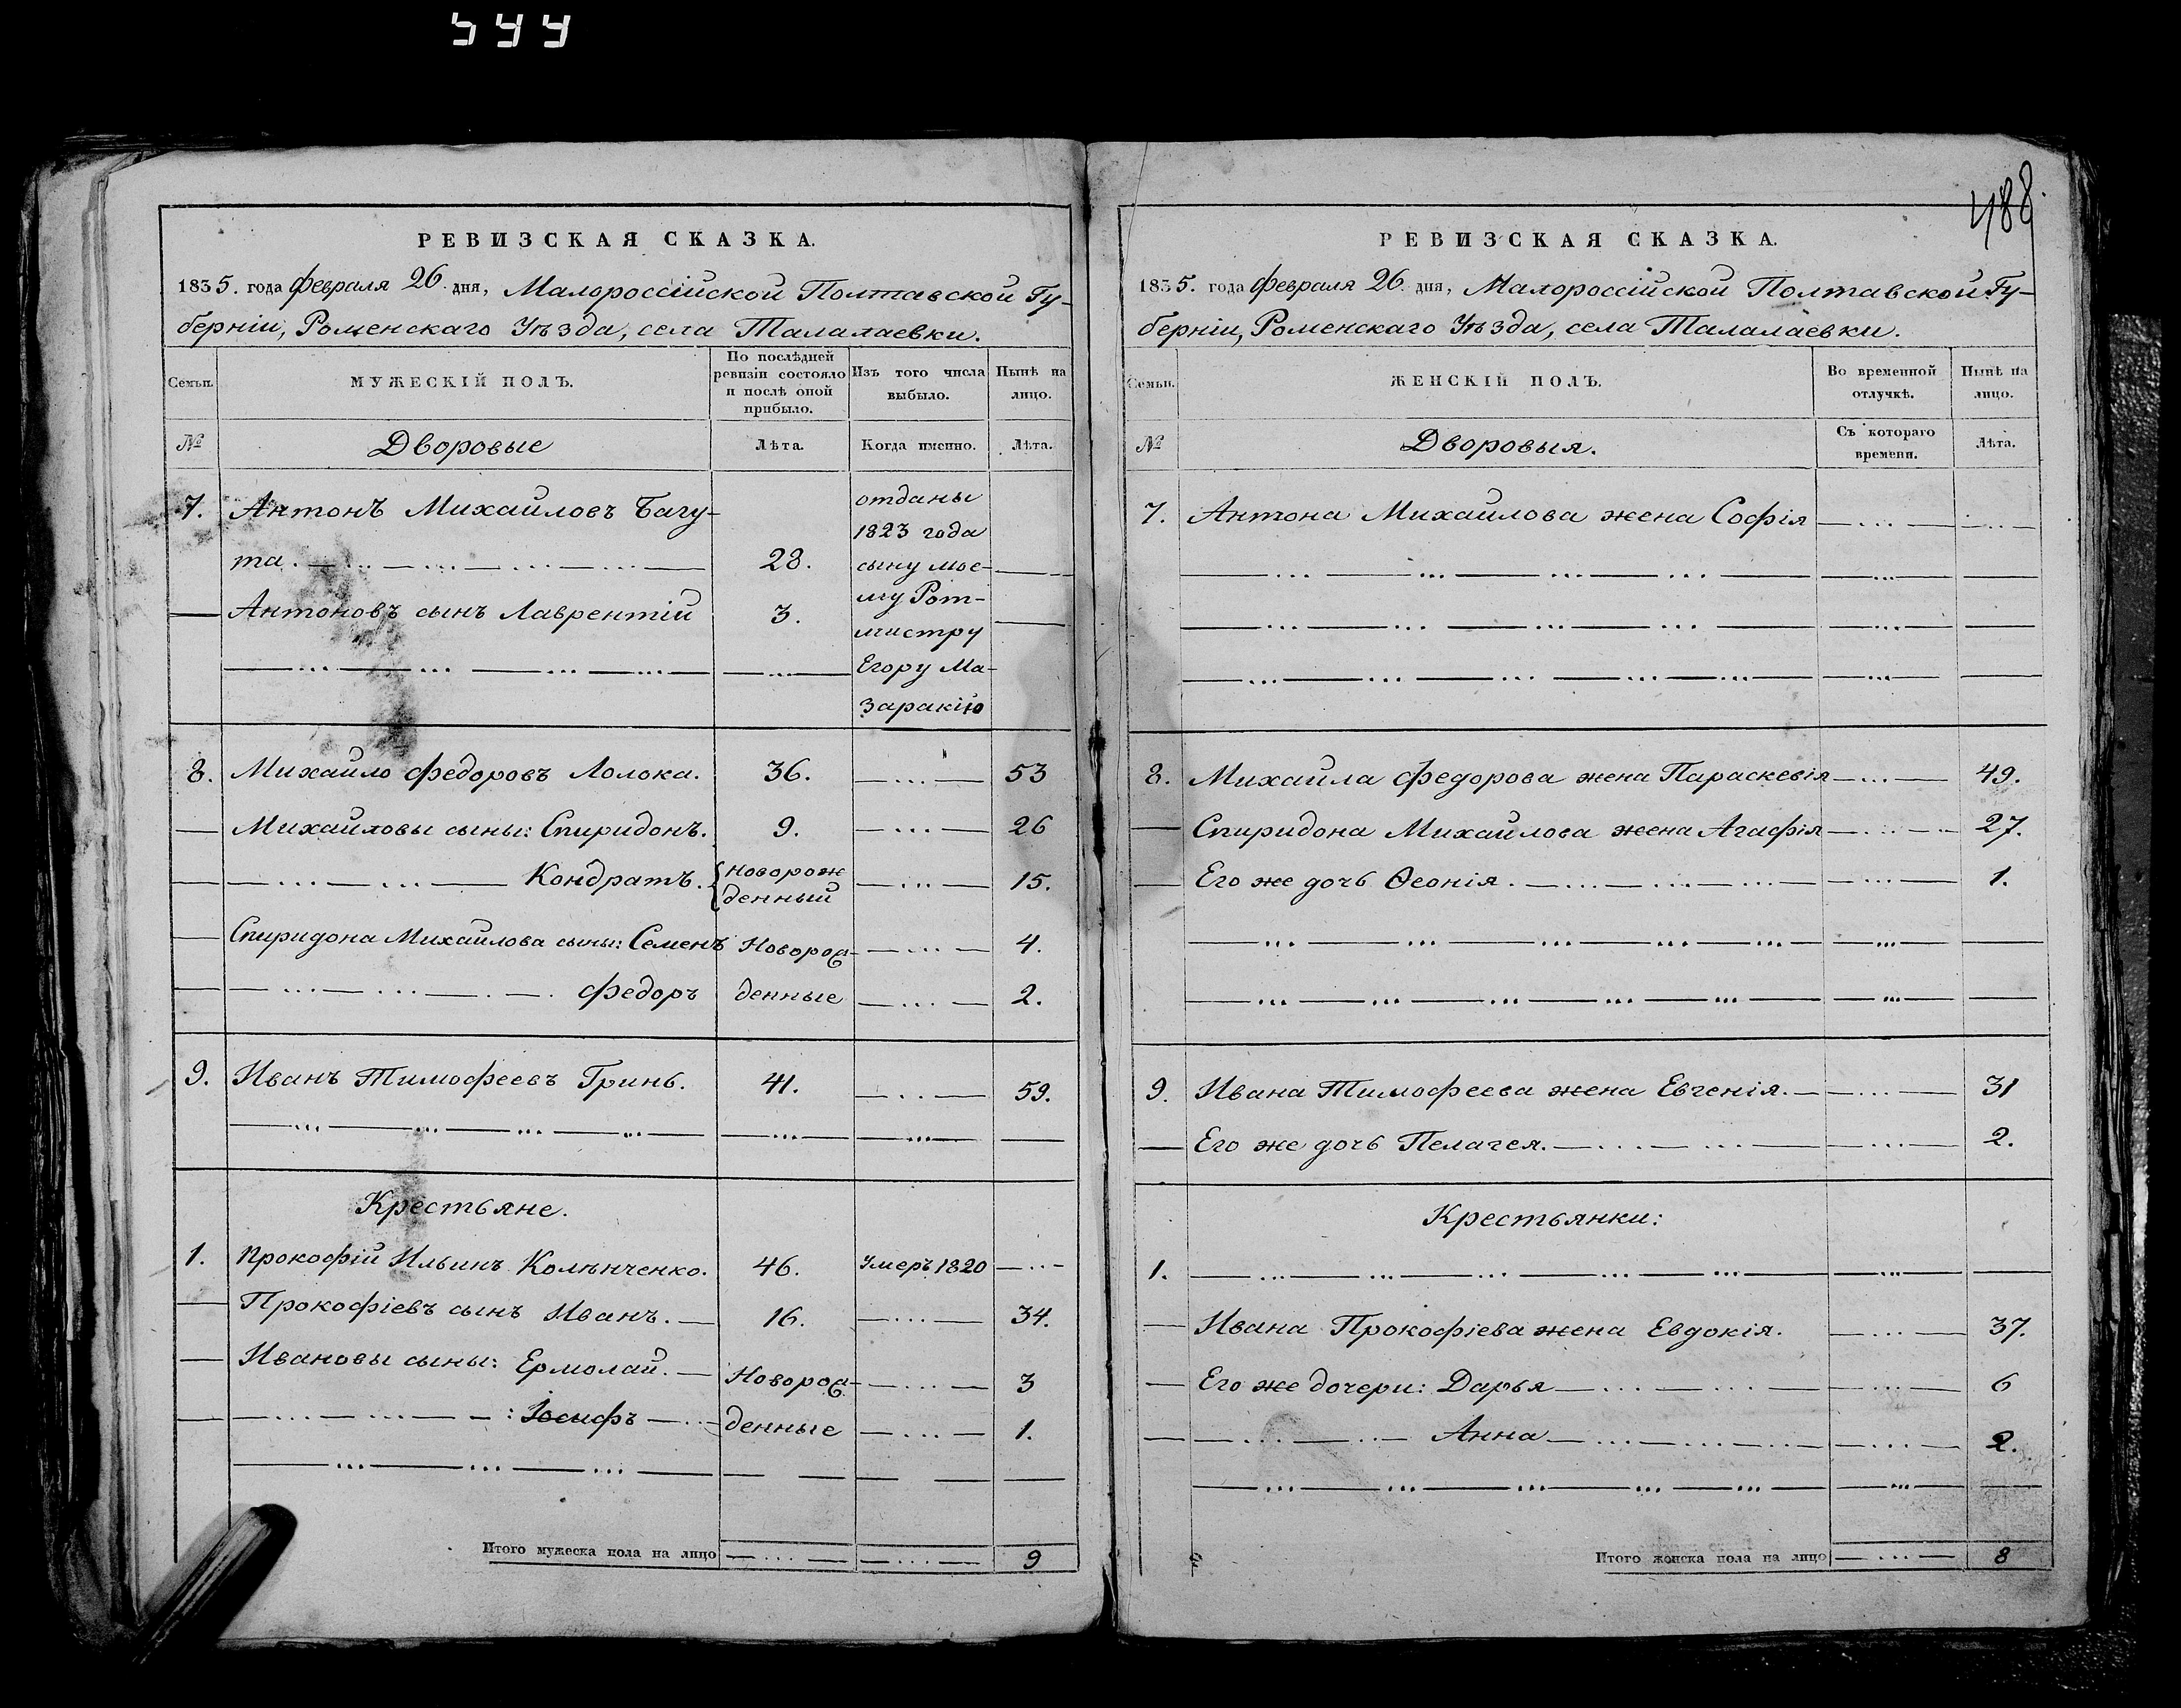 544
488.
РЕВИЗСКАЯ СКАЗКА.
1835. года Февраля 26. дня, Малороссійской Полтавской Гу-
берніи, Роменскаго Уѣзда, села Талалаевки.
Семьи. МУЖЕСКІЙ ПОЛЪ. По послѣдней ревизіи состояло и послѣ оной прибыло. Изъ того числа выбыло. Нынѣ на лицо.
№ Дворовые Лѣта. Когда именно. Лѣта.
7. Антонъ Михайловъ Багу-
та. 28.
Антоновъ сынъ Лаврентій 3.
отданы
1823 года
сыну мое-
му Рот-
мистру
Егору Ма-
заракію
8. Михайло Федоровъ Лолока. 36. 53
Михайловы сыны: Спиридонъ. 9. 26
Кондратъ. Новорож
денный 15.
Спиридона Михайлова сыны: Семенъ Новорож- 4.
Федоръ денные 2.
9. Иванъ Тимофеевъ Гринь. 41. 59.
Крестьяне.
1. Прокофій Ильинъ Колѣнченко. 46. Умеръ 1820
Прокофіевъ сынъ Иванъ. 16. 34.
Ивановы сыны: Ермолай. Новорож- 3
: Іосифъ денные 1.
Итого мужеска пола на лицо 9
РЕВИЗСКАЯ СКАЗКА.
1835. года Февраля 26. дня, Малороссійской Полтавской Гу-
берніи, Роменскаго Уѣзда, села Талалаевки.
Семьи. ЖЕНСКІЙ ПОЛЪ. Во временной отлучкѣ. Нынѣ на лицо.
№ Дворовыя. Съ котораго времени. Лѣта.
7. Антона Михайлова жена Софія
8. Михайла Федорова жена Параскевія 49.
Спиридона Михайлова жена Агафія 27.
Его же дочь Ѳеонія. 1.
9. Ивана Тимофеева жена Евгенія. 31
Его же дочь Пелагея. 2.
Крестьянки:
1.
Ивана Прокофіева жена Евдокія. 37.
Его же дочери: Дарья 6
Анна 2.
Итого женска пола на лицо 8